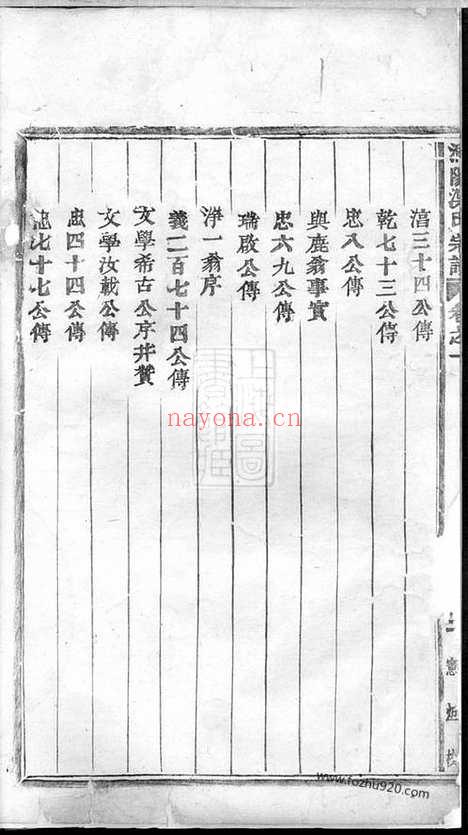 宗譜 卷之一
淯三十四公傳
乾七十三公傳
忠八公傳
與鹿翁事實
忠六九公傳
瑞啟公傳
淨一翁序
義二百七十四公傳
文學希古公序并贊
文學汝載公傳
忠四十四公傳
忠七十七公傳
nayona.cn
www.fozhu920.com